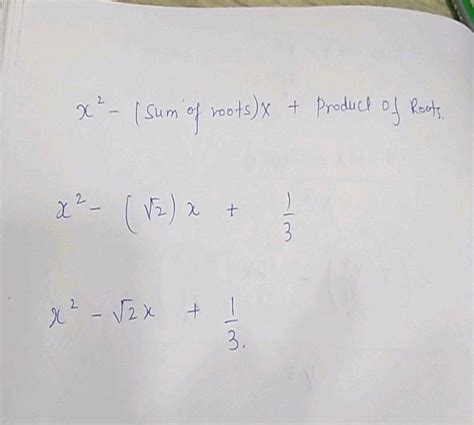 x² - (Sum of roots)x + Product of Roots.
x² - (√2) x + 1/3
x² - √2x + 1/3.